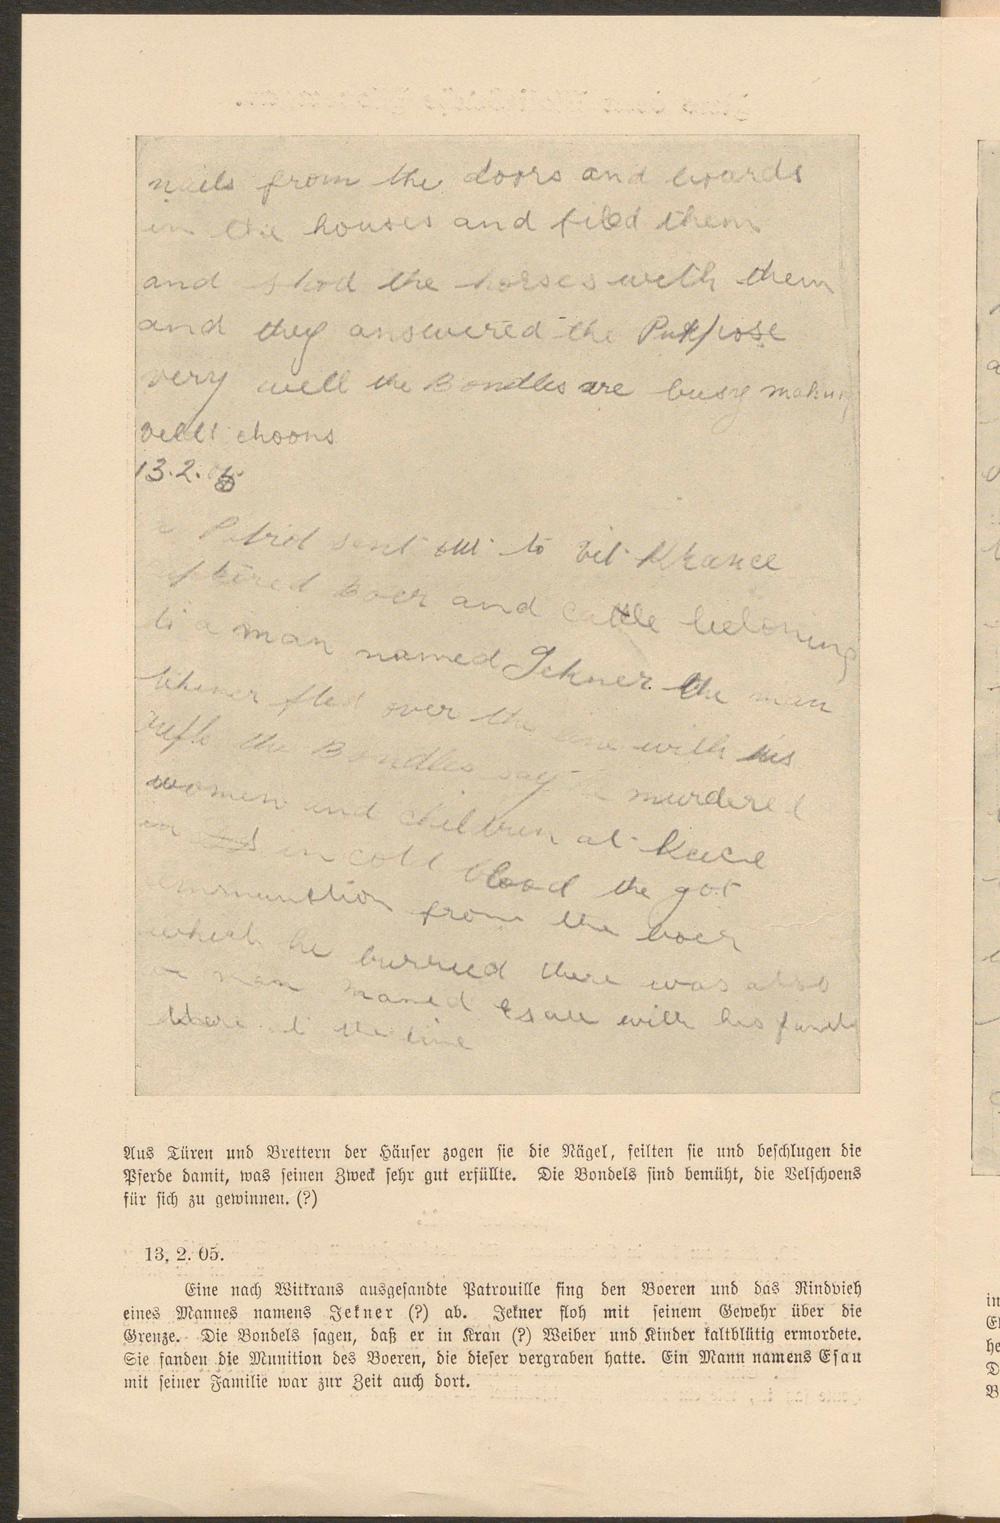 nails from the doors and boards
in the houses and filed them
and shod the horses with them
and they answered the Purpose
very well the Bondles are busy making
velt choons
13.2.05
a Patrol sent out to Vit Krance
captured boer and cattle beloning
to a man named Jekner. the man
Jekner fled over the line with his
rifle the Bondles say he murdered
women and children at
in cold blood the got
ammunition from the boer
which he burried there was also
a man named Esau with his family
there at the time
Aus Türen und Brettern der Häuser zogen sie die Nägel, feilten sie und beschlugen die
Pferde damit, was seinen Zweck sehr gut erfüllte. Die Bondels sind bemüht, die Velschoens
für sich zu gewinnen. (?)
13. 2. 05.
Eine nach Witkrans ausgesandte Patrouille fing den Boeren und das Rindvieh
eines Mannes namens Jekner (?) ab. Jekner floh mit seinem Gewehr über die
Grenze. Die Bondels sagen, daß er in Kran (?) Weiber und Kinder kaltblütig ermordete.
Sie fanden die Munition des Boeren, die dieser vergraben hatte. Ein Mann namens Esau
mit seiner Familie war zur Zeit auch dort.